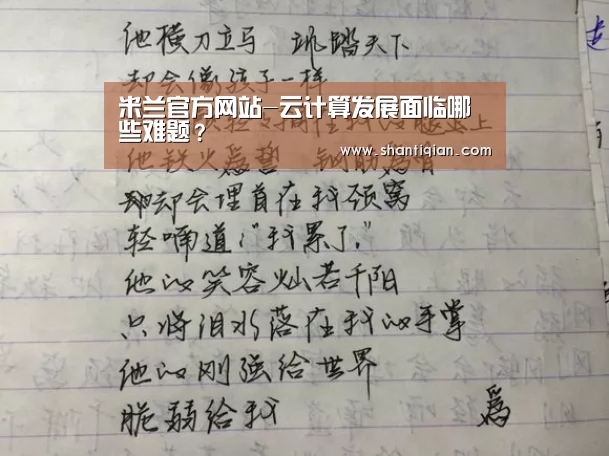 他横刀立马 踏天下
却会像孩子一样
米兰官方网站-云计算发展面临哪
些难题?
www.shantiqian.com
上
他铁火为誓 钢筋为骨
却却会埋首在我颈窝
轻喃道:"我累了."
他的笑容灿若千阳
只将泪水落在我的手掌
他的刚强给世界
脆弱给我
为